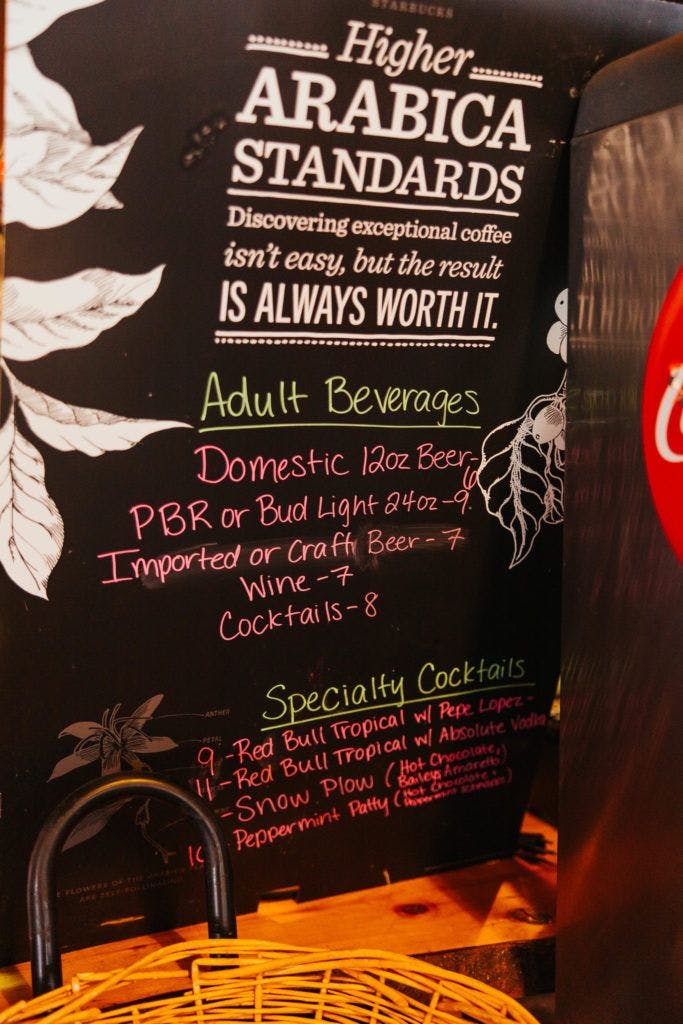 STARBUCKS
Higher
ARABICA
STANDARDS
Discovering exceptional coffee
isn't easy, but the result
IS ALWAYS WORTH IT.
Adult Beverages
Domestic 12oz Beer-
6
PBR or Bud Light 24oz-9
Imported or Craft Beer-7
Wine-7
Cocktails-8
Specialty Cocktails
9 -Red Bull Tropical w/ Pepe Lopez-
11 -Red Bull Tropical w/ Absolute Vodka
-Snow Plow (Hot Chocolate,
Baileys Amaretto)
10 Peppermint Patty (Hot Chocolate,
Peppermint Schnapps)
ANTHER
PETAL
FLOWERS OF THE ARABICA
ARE SELF-POLLINATING